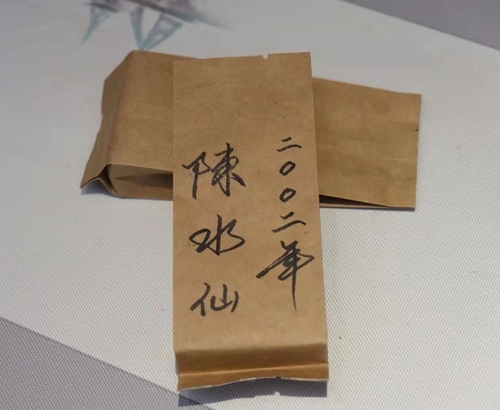 二〇〇二年
陳水仙